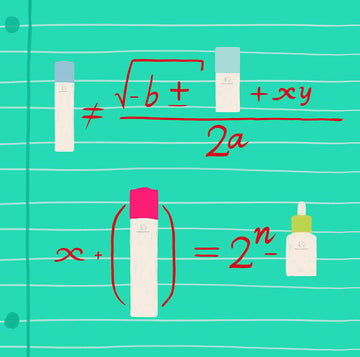 ≠ √-b ± + xy
2a
x + ( ) = 2ⁿ -